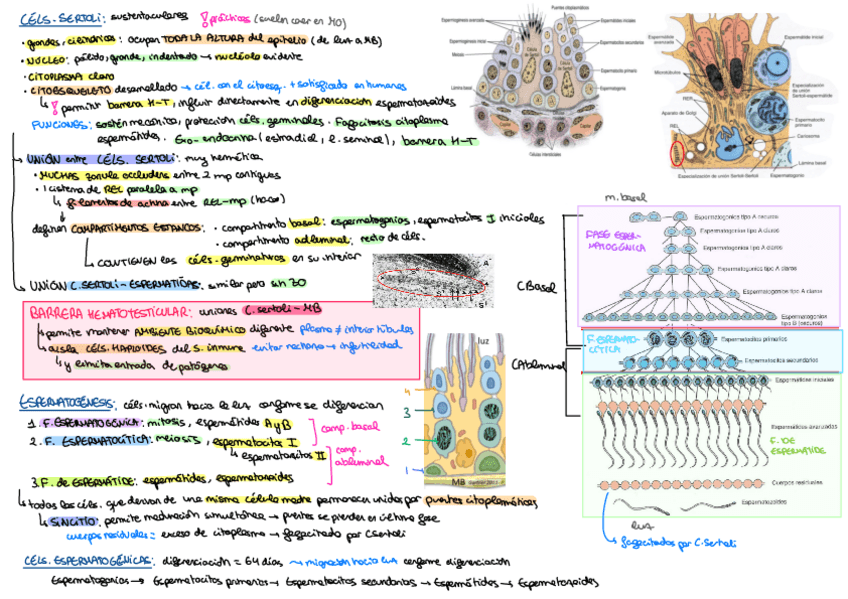 CÉLS. SERTOLI: sustentaculares ! prácticas (suelen caer en MO)
· grandes, cilíndricas: ocupan TODA LA ALTURA del epitelio (de luz a MB)
· NÚCLEO: pálido, grande, indentado → nucléolo evidente
· CITOPLASMA claro
· CITOESQUELETO desarrollado → cél. con el citoesq. + sofisticado en humanos
↳ ! permitir barrera H-T, influir directamente en diferenciación espermatozoides
FUNCIONES: sostén mecánico, protección céls. germinales. Fagocitosis citoplasma
espermátides. Exo-endocrina (estradiol, l. seminal), barrera H-T
→ UNIÓN entre CÉLS. SERTOLI: muy hermética
· MUCHAS zonula occludens entre 2 mp contiguas
· 1 cisterna de REL paralela a mp
↳ filamentos de actina entre REL-mp (haces)
definen COMPARTIMENTOS ESTANCOS: · compartimento basal: espermatogonias, espermatocitos I iniciales
· compartimento adluminal: resto de céls.
↳ CONTIENEN las céls. germinativas en su interior
→ UNIÓN C. SERTOLI - ESPERMÁTIDAS: similar pero sin ZO
BARRERA HEMATOTESTICULAR: uniones C. sertoli - MB
↳ permite mantener AMBIENTE BIOQUÍMICO diferente plasma ≠ interior túbulos
↳ aísla CÉLS. HAPLOIDES del S. inmune evitar rechazo → infertilidad
↳ y evita entrada de patógenos
ESPERMATOGÉNESIS: céls. migran hacia la luz conforme se diferencian
1. F. ESPERMATOGÓNICA: mitosis, espermátides A y B
2. F. ESPERMATOCÍTICA: meiosis, espermatocitos I
comp. basal
↳ espermatocitos II
comp. abluminal
3. F. de ESPERMÁTIDE: espermátides, espermatozoides
↳ todas las céls. que derivan de una misma célula madre permanecen unidas por puentes citoplasmáticos
↳ SINCITIO: permite maduración simultánea → puentes se pierden en última fase
cuerpos residuales = exceso de citoplasma → fagocitado por C. Sertoli
CÉLS. ESPERMATOGÉNICAS: diferenciación = 64 días → migración hacia luz conforme diferenciación
Espermatogonias → Espermatocitos primarios → Espermatocitos secundarios → Espermátides → Espermatozoides
Puentes citoplasmáticos
Espermátides iniciales
Espermatocitos secundarios
Espermatocito primario
Espermatogonia
Lámina basal
Capilar
Células intersticiales
Espermátide avanzada
Microtúbulos
RER
Aparato de Golgi
REL
Espermátide inicial
Especialización de unión Sertoli-espermátide
Espermatocito primario
Lámina basal
Espermatogonio
Especialización de unión Sertoli-Sertoli
luz
4
3
2
1
MB
m. basal
C. Basal
C. Abluminal
FASE ESPERMATOGÓNICA
Espermatogonios tipo A oscuros
Espermatogonios tipo A claros
Espermatogonios tipo A claros
Espermatogonios tipo A claros
Espermatogonios tipo A claros
Espermatogonios tipo B (oscuros)
F. ESPERMATOCÍTICA
Espermatocitos primarios
Espermatocitos secundarios
Espermátides iniciales
Espermátides avanzadas
F. DE ESPERMÁTIDE
Cuerpos residuales
Espermatozoides
luz
fagocitados por C. Sertoli